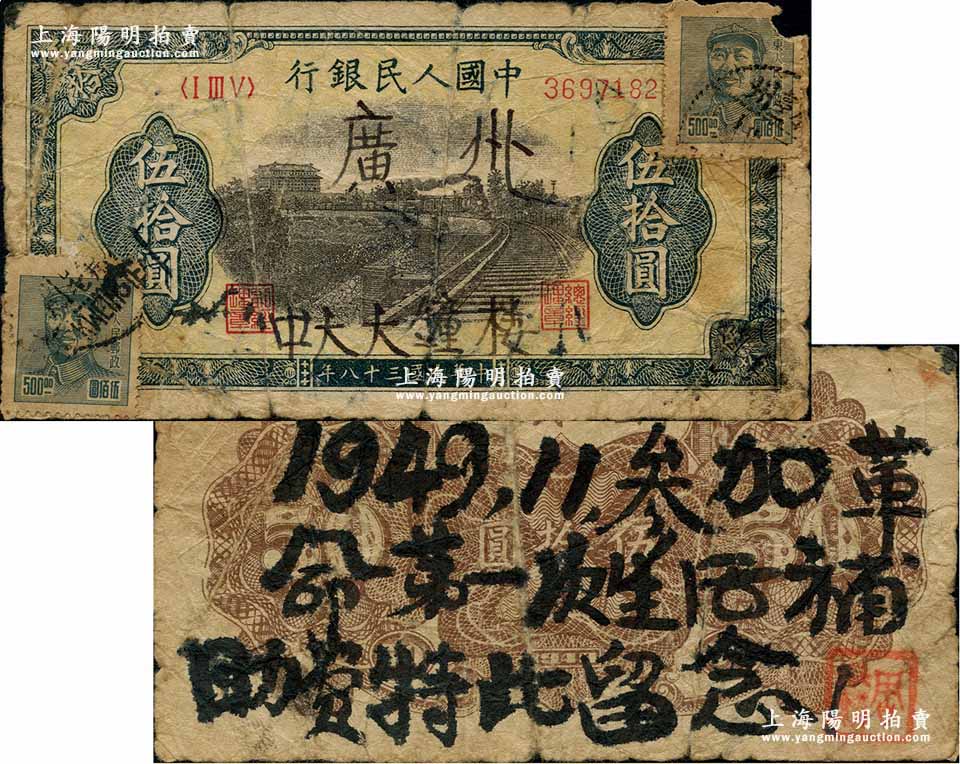 上海陽明拍賣
www.yangmingauction.com
〈I III V〉
行銀民人國中
3697182
廣州
伍拾圓
伍拾圓
500
圓佰伍
500
圓佰伍
中大大鐘楼
年八十三國
上海陽明拍賣
www.yangmingauction.com
1949.11.叅加革
命第一次生活補
助费特此留念！
圓拾伍
50
上海陽明拍賣
www.yangmingauction.com